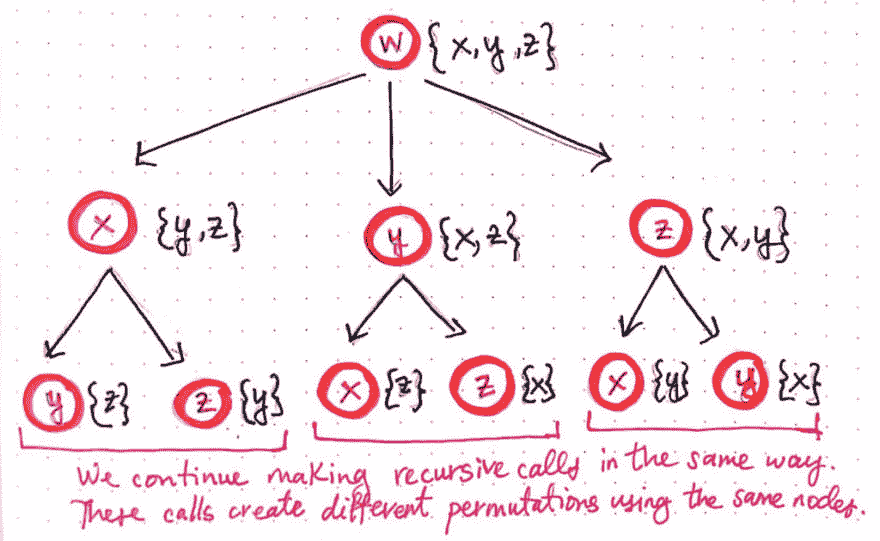 w {x,y,z}
x {y,z} y {x,z} z {x,y}
y {z} z {y} x {z} z {x} x {y} y {x}
We continue making recursive calls in the same way.
These calls create different permutations using the same nodes.